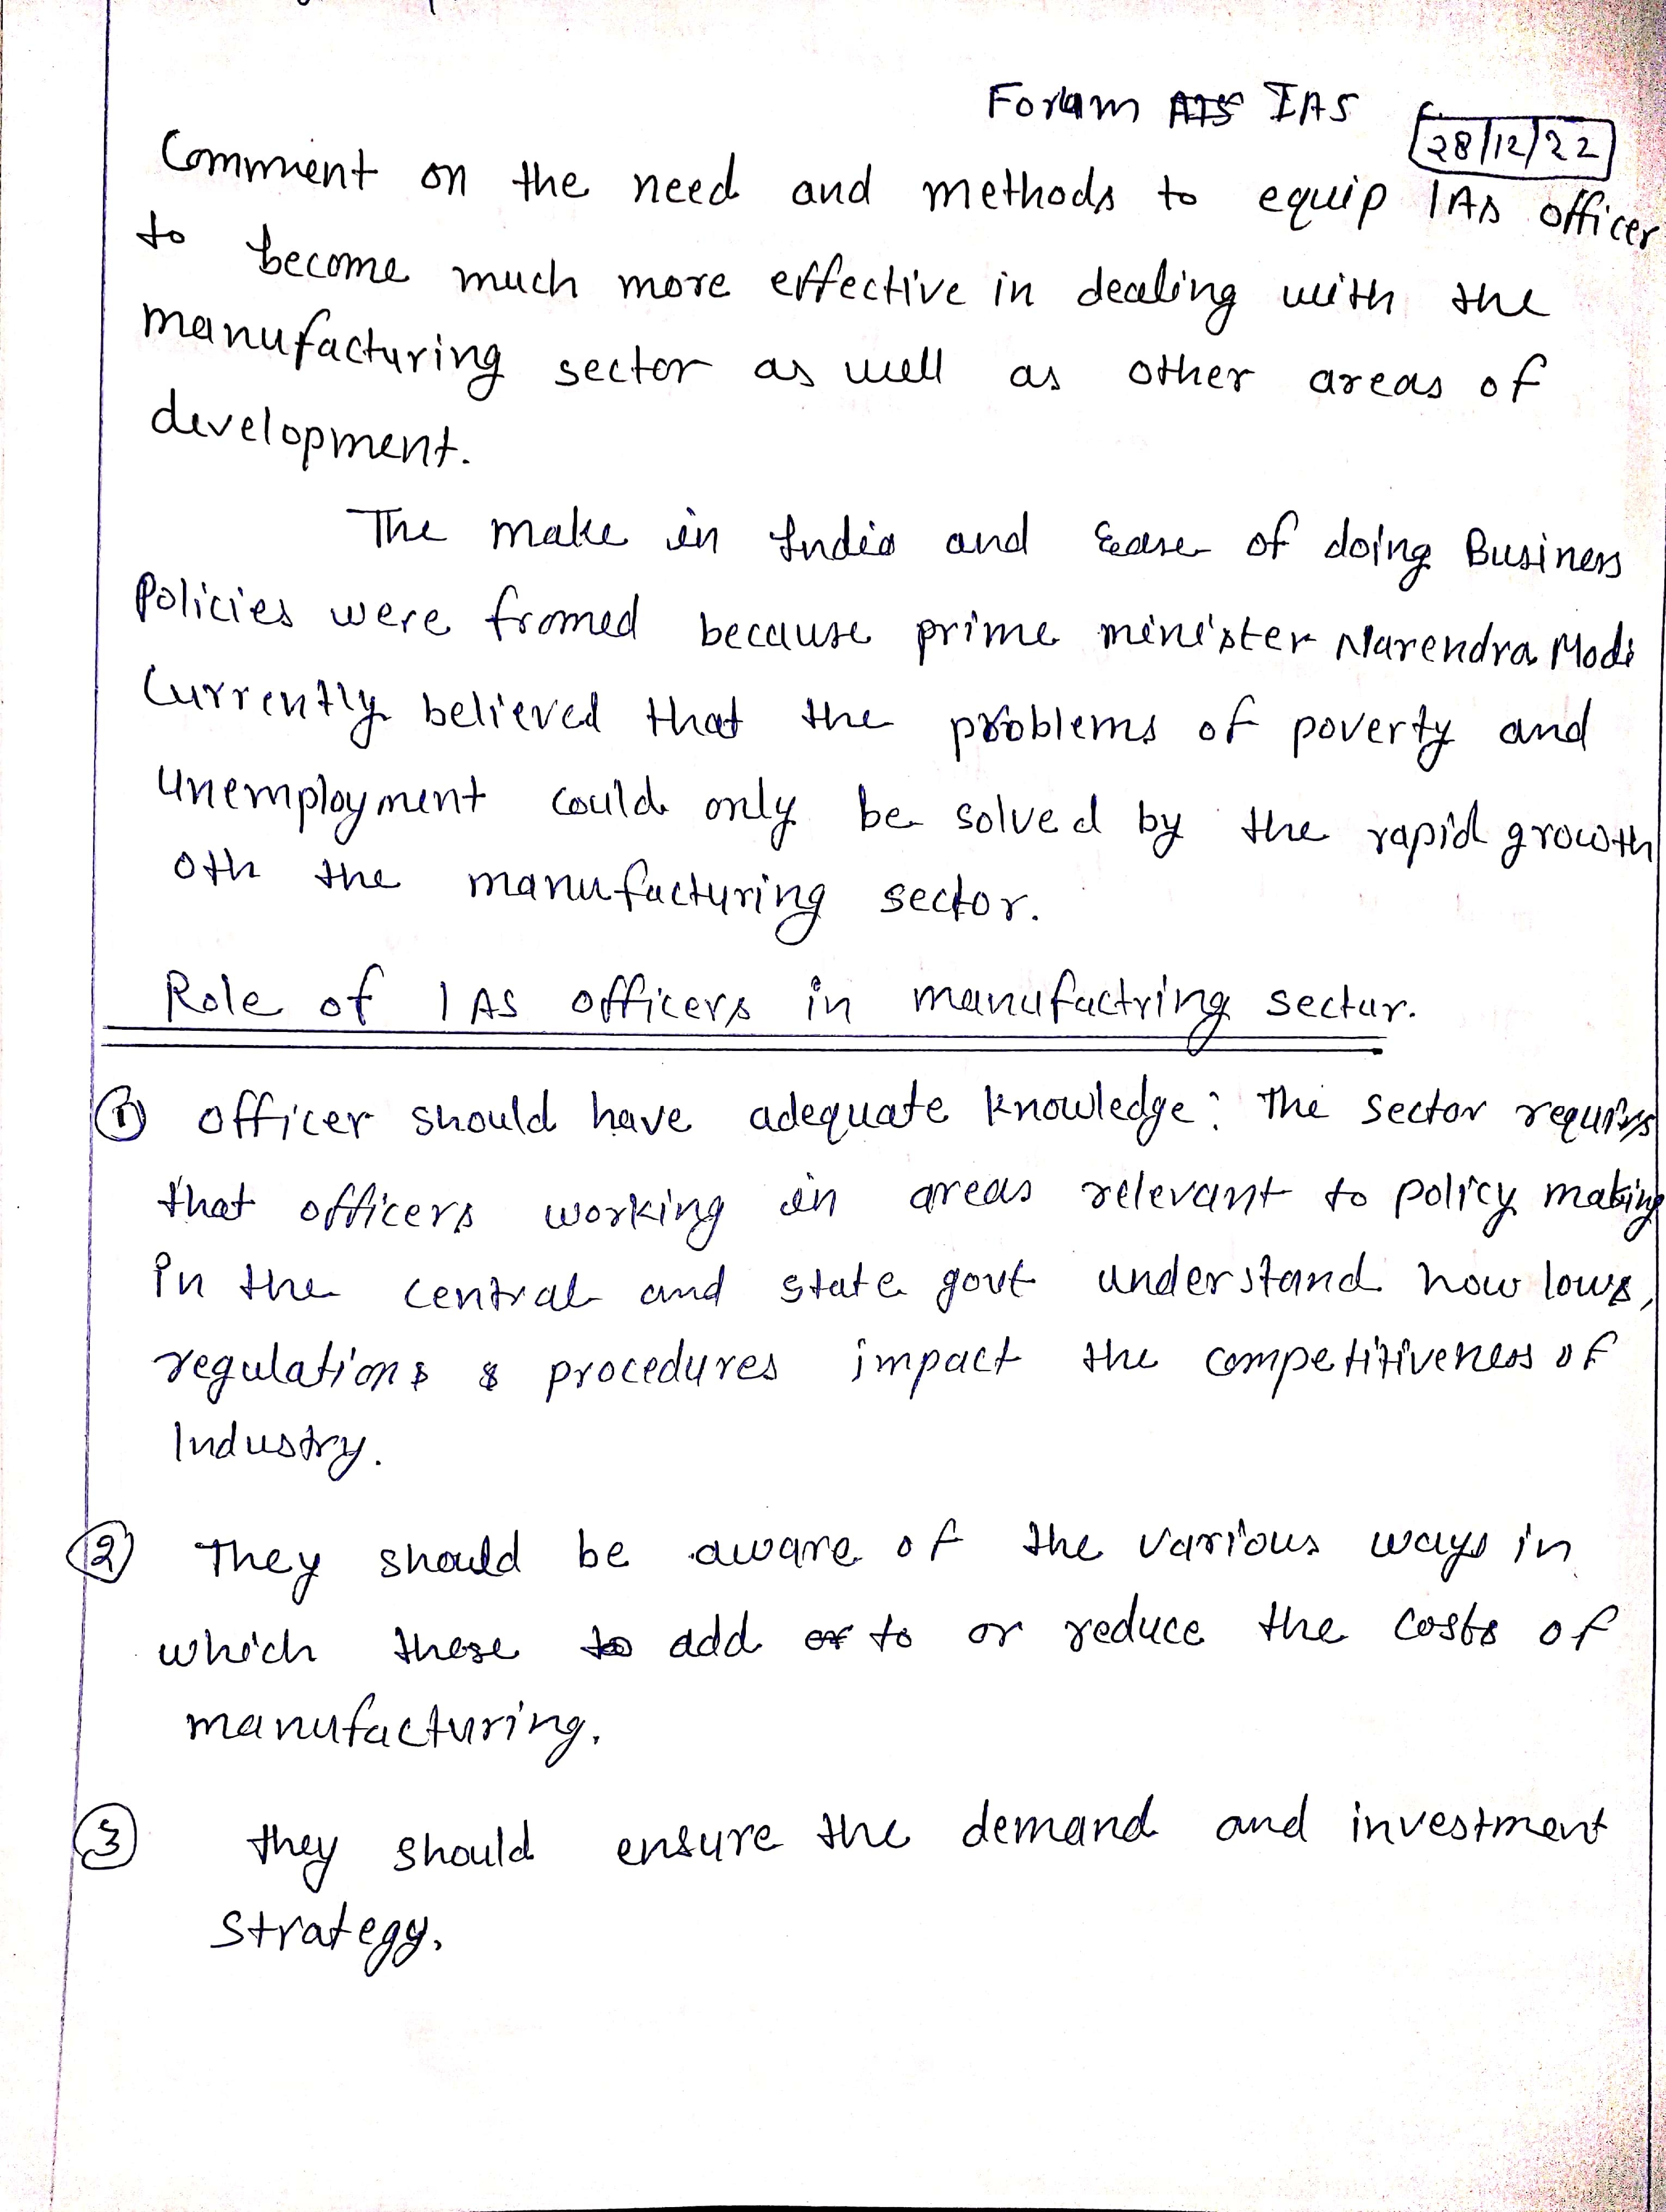 Forum AIS IAS
28/12/22
Comment on the need and methods to equip IAS officer
to become much more effective in dealing with the
manufacturing sector as well as other areas of
development.
The make in India and Ease of doing Business
Policies were fromed because prime minister Narendra Modi
Currently believed that the problems of poverty and
unemployment could only be solved by the rapid growth
oth the manufacturing sector.
Role of IAS officers in manufactring sectur.
① officer should have adequate knowledge: The sector requires
that officers working in areas relevant to policy making
in the central and state govt understand how lows,
regulations & procedures impact the competitiveness of
Industry.
② They should be aware of the various ways in
which these to add or to or reduce the costs of
manufacturing.
③ they should ensure the demand and investment
strategy.